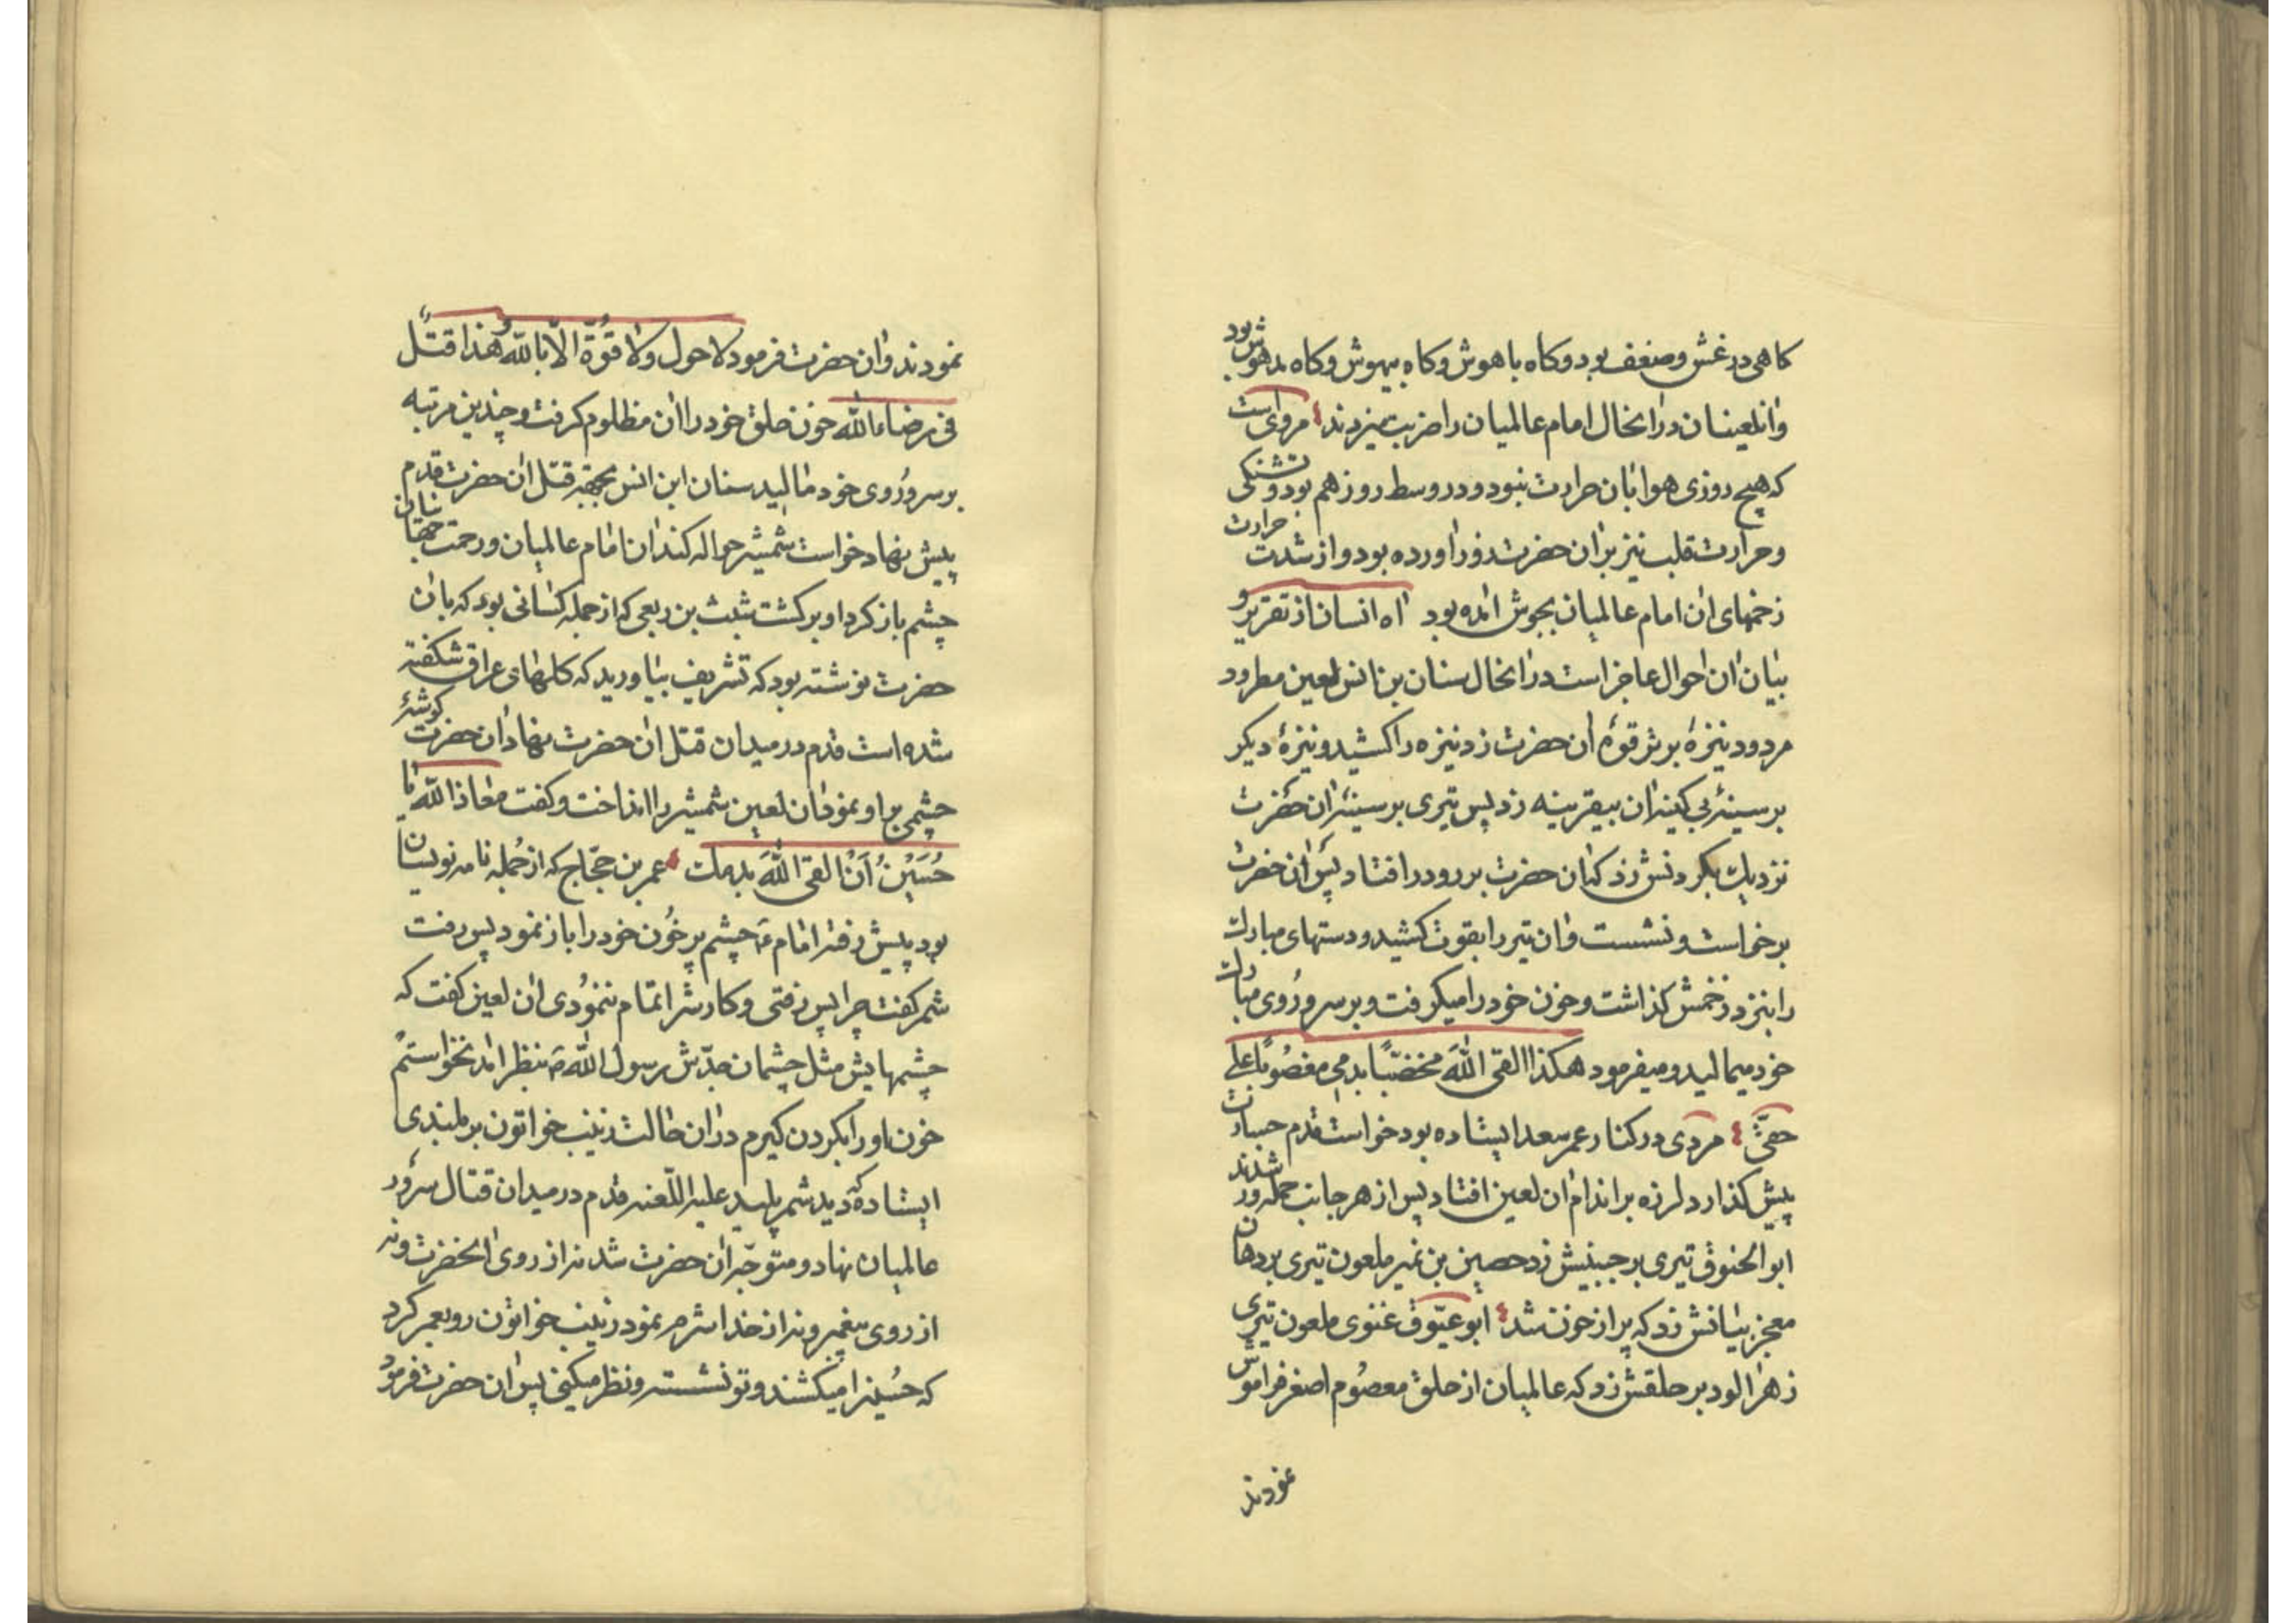 کاهی در غش وضعف بود وکاه باهوش وکاه بیهوش وکاه مدهوش بود
وانلعینان در انحال امام عالمیان را ضربت میزدند مرویست
که هیچ روزی هوا بان حرارت نبود و در وسط روز هم بود و تشنکی
و حرارت قلب نیز بران حضرت زور اورده بود و از شدت حرارت
زخمهای ان امام عالمیان بجوش امده بود اه انسان از تقریر و
بیان ان احوال عاجز است در انحال سنان بن انس لعین مطرود
مردود نیزۀ بر ترقوۀ ان حضرت زد نیزه را کشید و نیزۀ دیکر
بر سینۀ بی کینۀ ان بیقرینه زد پس تیری بر سینۀ ان حضرت
نزدیك بکردنش زد که ان حضرت بر رو در افتاد پس ان حضرت
برخواست و نشست و ان تیر را بقوت کشید و دستهای مبارك
را بنزد زخمش کذاشت و خون خود را میکرفت و بر سر و روی مبارك
خود میمالید و میفرمود هکذا القی اللّٰه مخضبًا بدمی مغصوبًا علی
حقّی مردی در کنار عمر سعد ایستاده بود خواست قدم جسارت
پیش کذارد لرزه بر اندام ان لعین افتاد پس از هر جانب حمله ور شدند
ابو الحنوق تیری بر جبینش زد حصین بن نمیر ملعون تیری بر دهان
معجز بیانش زد که پر از خون شد ابو عیّوف غنوی ملعون تیری
زهر الود بر حلقش زد که عالمیان از حلق معصوم اصغر فراموش
نمودند
نمودند وان حضرت فرمود لا حول ولا قُوّة الّا باللّٰه وهذا قتیلً
فی رضاء اللّٰه خون حلق خود را ان مظلوم کرفت و چندین مرتبه
بر سر و روی خود مالید سنان ابن انس بجهة قتل ان حضرت قدم
پیش نهاد خواست شمشیر حواله کند ان امام عالمیان و رحمت جهانیان
چشم باز کرد او برکشت شبث بن ربعی که از جمله کسانی بود که بان
حضرت نوشته بود که تشریف بیاورید که کلهای عراق شکفته
شده است قدم در میدان قتل ان حضرت نهاد ان حضرت کوشۀ
چشمی باو نمود ان لعین شمشیر را انداخت و کفت معاذ اللّٰه یا
حُسَیْنُ اَنْ القی اللّٰهَ بدمك عمر بن حجّاج که از جُمله نامه نویسان
بود پیش رفت امام ع چشم پر خُون خود را باز نمود پس رفت
شمر کفت چرا پس رفتی و کارش را تمام ننمودی ان لعین کفت که
چشمهایش مثل چشمان جدّش رسول اللّٰه ص بنظر امد نخواستم
خون او را بکردن کیرم در ان حالت زینب خواتون بر بلندی
ایستاده که دید شمر پلید علیه اللّعنه قدم در میدان قتال سرور
عالمیان نهاد و متوجّه ان حضرت شد نه از روی انحضرت و نه
از روی پیغمبر و نه از خدا شرم نمود زینب خواتون رو بعمر کرد
که حُسین را میکشند و تو نشسته و نظر میکنی پس ان حضرت فرمود